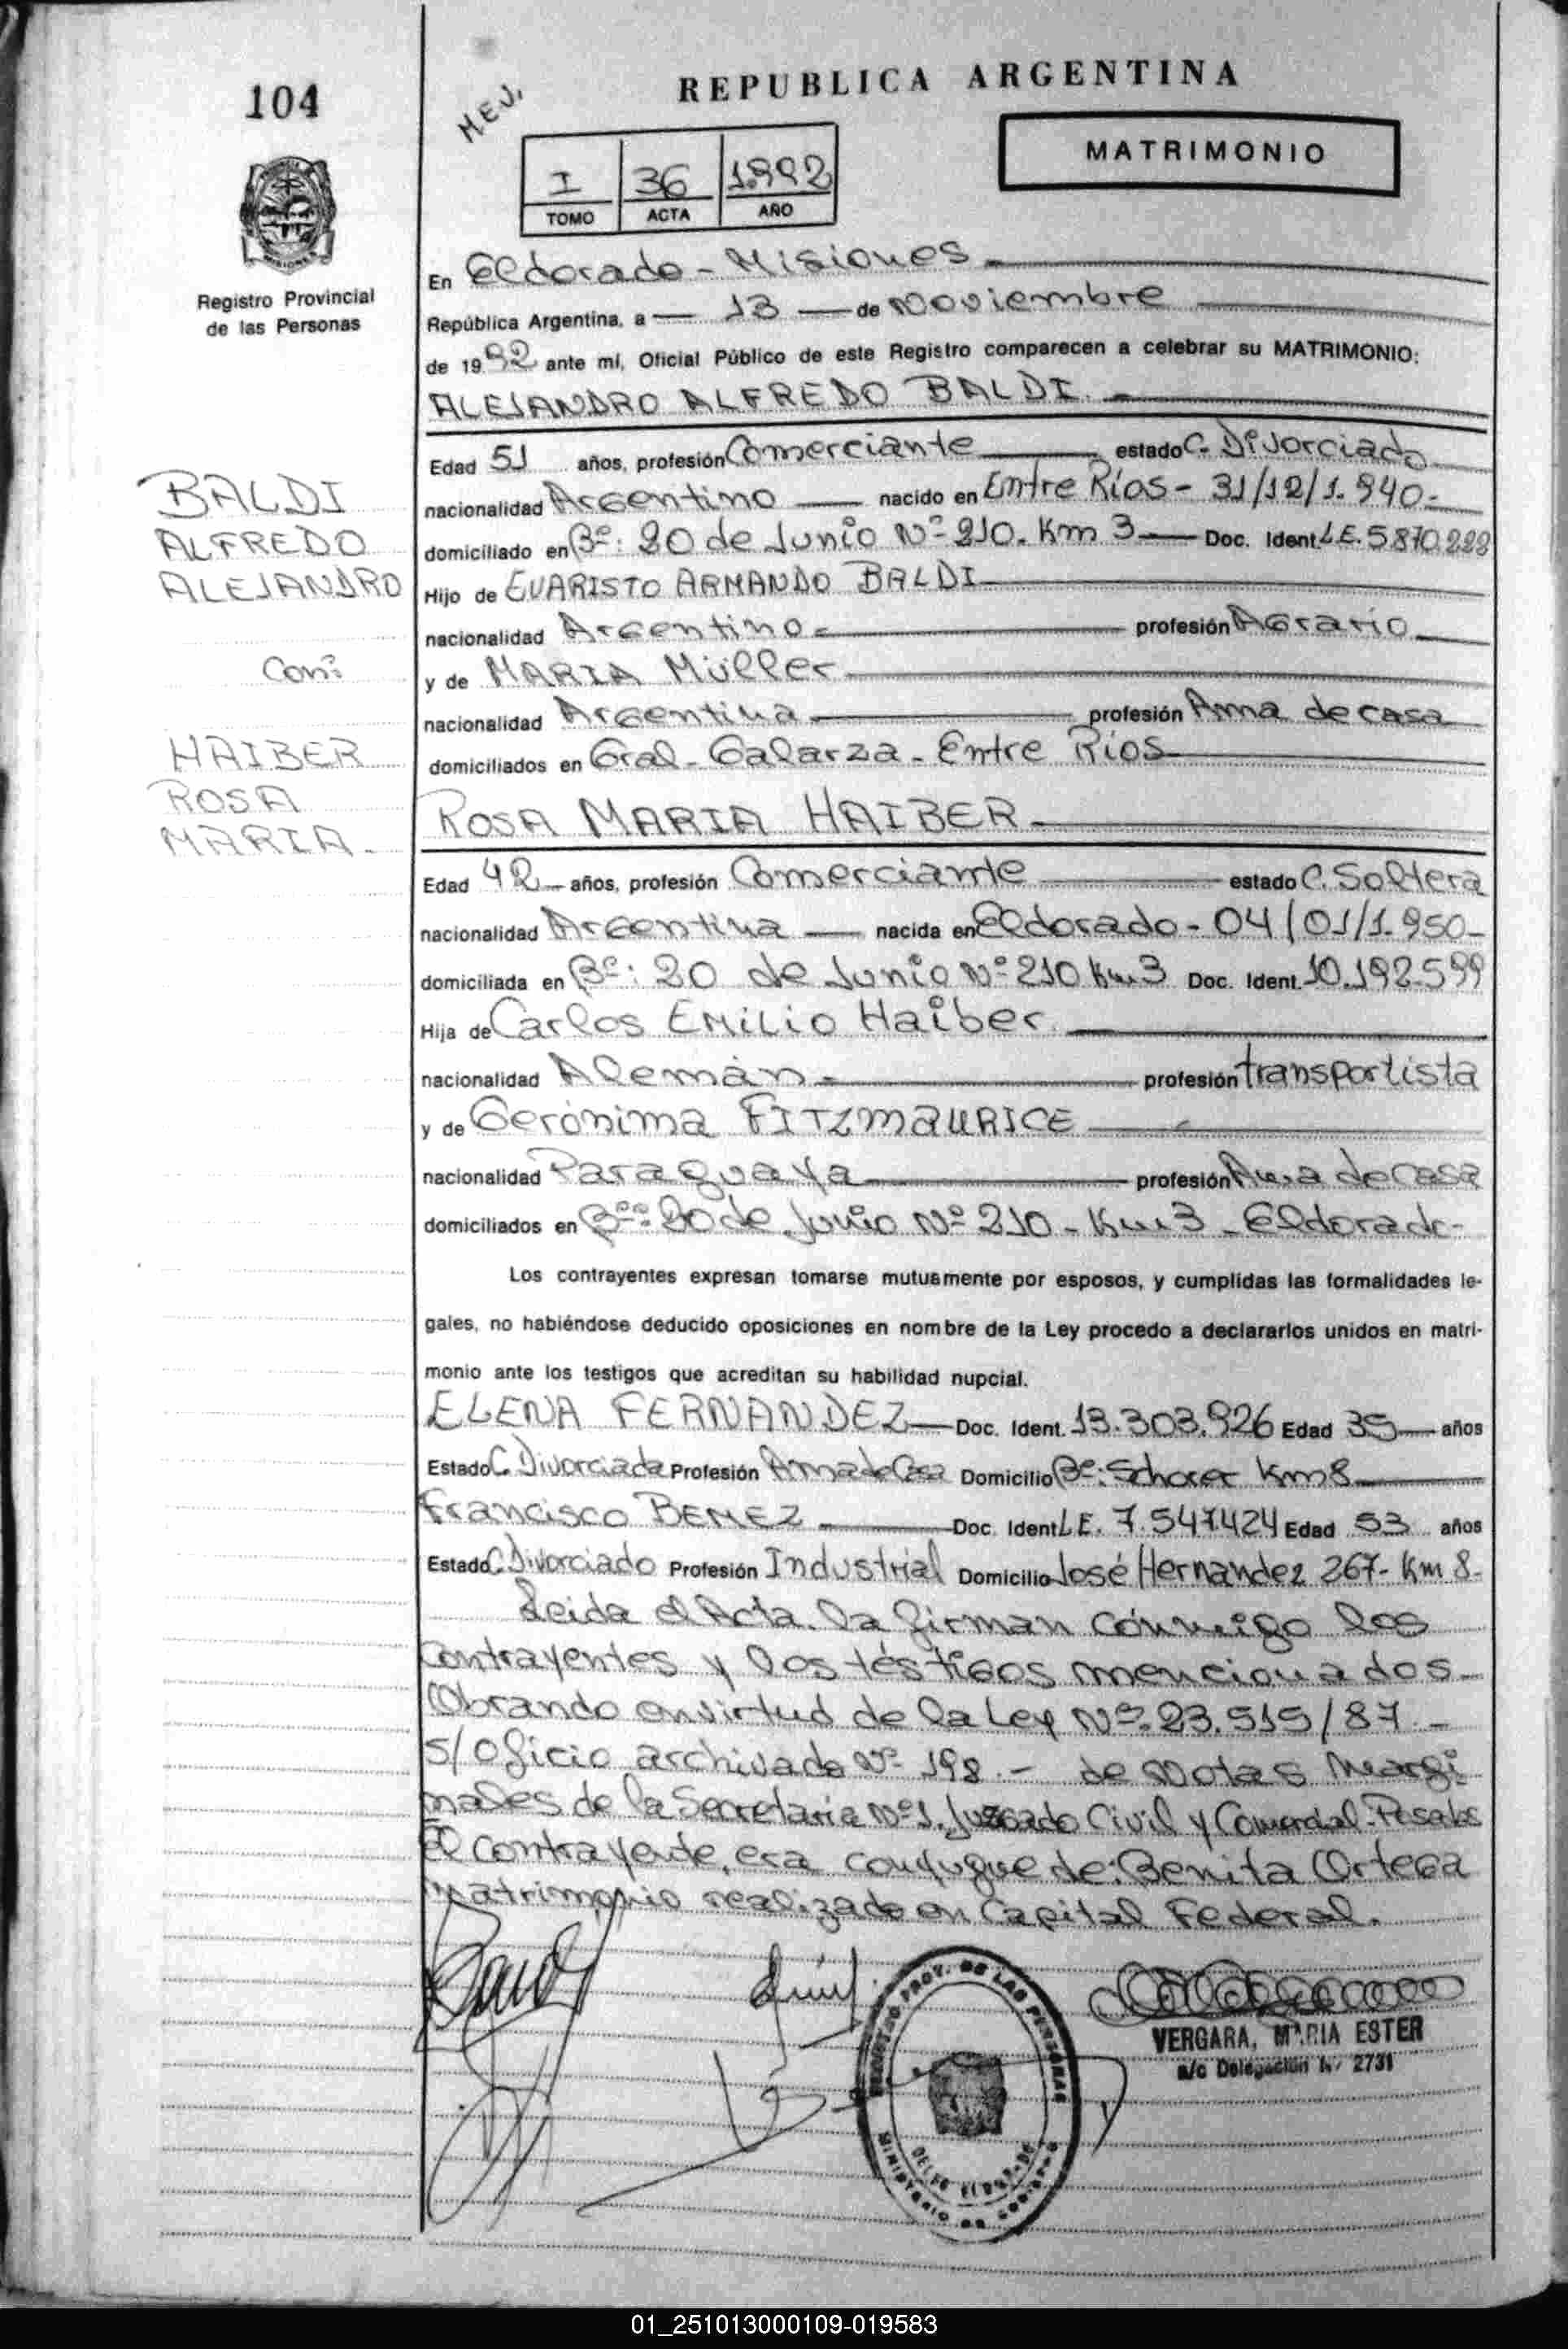 104
REPUBLICA ARGENTINA
M.E.J.
MATRIMONIO
I 36 1.992
TOMO ACTA AÑO
Registro Provincial
de las Personas
En Eldorado - Misiones
República Argentina, a 13 de Noviembre
de 1992 ante mí, Oficial Público de este Registro comparecen a celebrar su MATRIMONIO:
ALEJANDRO ALFREDO BALDI.
Edad 51 años, profesión Comerciante estado C. Divorciado
BALDI
ALFREDO
ALEJANDRO
Con:
HAIBER
ROSA
MARIA.
nacionalidad Argentino nacido en Entre Ríos - 31/12/1.940-
domiciliado en Bº: 20 de Junio Nº 210. Km 3 Doc. Ident. L.E. 5870.
Hijo de EVARISTO ARMANDO BALDI
nacionalidad Argentino profesión Agrario
y de MARIA Müller
nacionalidad Argentina profesión Ama de casa
domiciliados en Gral. Galarza - Entre Ríos
ROSA MARIA HAIBER
Edad 42 años, profesión Comerciante estado C. Soltera
nacionalidad Argentina nacida en Eldorado - 04/01/1.950-
domiciliada en Bº: 20 de Junio Nº 210 Km 3 Doc. Ident. 10.192.599
Hija de Carlos EMiLio Haiber
nacionalidad Alemán profesión transportista
y de Gerónima FITZMAURICE
nacionalidad Paraguaya profesión Ama de Casa
domiciliados en Bº: 20 de Junio Nº 210 - Km 3 - Eldorado-
Los contrayentes expresan tomarse mutuamente por esposos, y cumplidas las formalidades le-
gales, no habiéndose deducido oposiciones en nombre de la Ley procedo a declararlos unidos en matri-
monio ante los testigos que acreditan su habilidad nupcial.
ELENA FERNANDEZ Doc. Ident. 13.303.926 Edad 35 años
Estado C. Divorciada Profesión Ama de Casa Domicilio Bº: Km 8
Francisco Doc. Ident L.E. 7.547424 Edad 53 años
Estado C. Divorciado Profesión Industrial Domicilio José Hernández 267 - Km 8-
Leida el Acta, la firman conmigo los
Contrayentes y los testigos mencionados
Obrando en virtud de la Ley Nº 23.515/87.-
S/Oficio archivado Nº 198.- de Notas Margi
nales de la Secretaria Nº 1. Juzgado Civil y Comercial. Posadas
El contrayente, era conyugue de: Benita Ortega
Matrimonio realizado en Capital Federal.
REGISTRO PROV. DE LAS PERSONAS
MINISTERIO DE GOBIERNO
VERGARA, MARIA ESTER
a/c Delegación Nº 2731
01_251013000109-019583